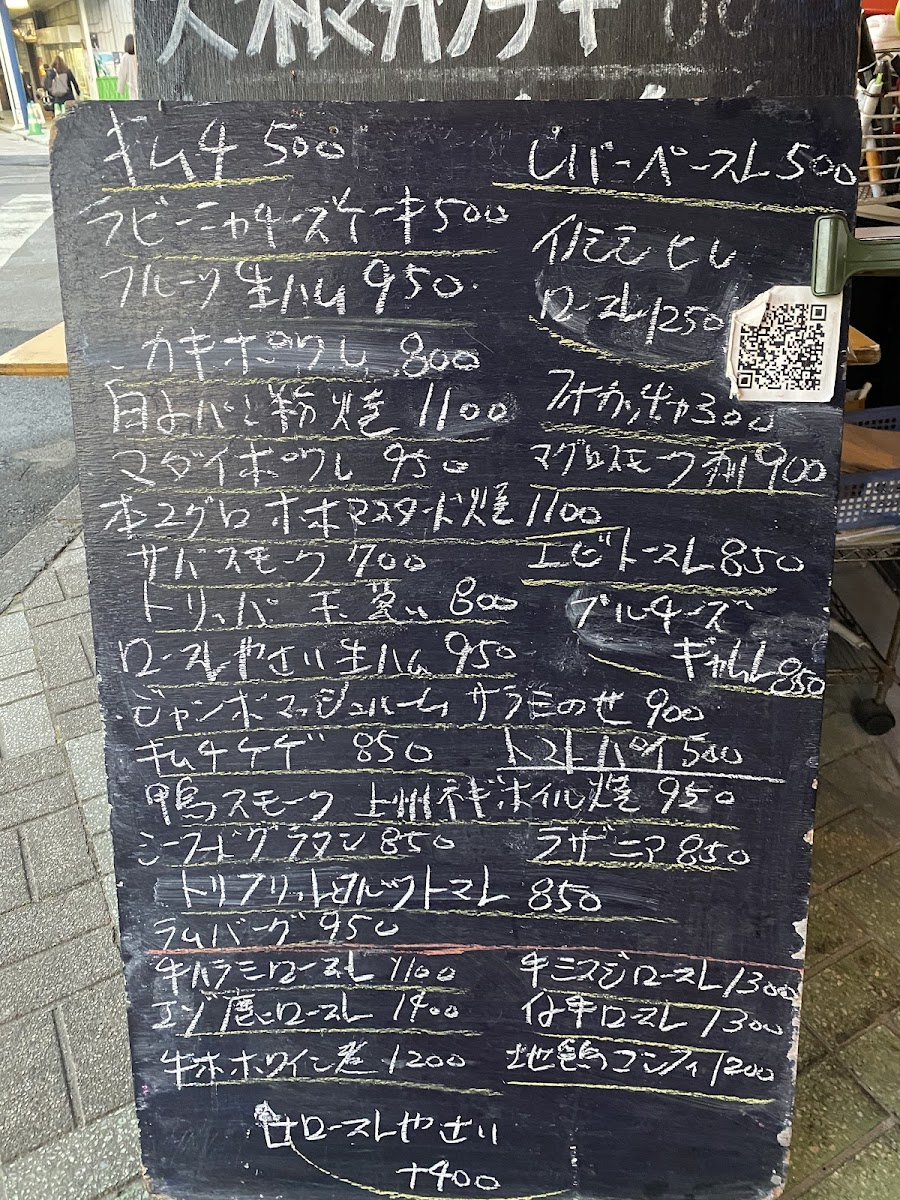 大根マカラキ
キムチ 500
レバーペースト 500
ラビーニャチーズケーキ 500
イノシシ ヒレ
フルーツ 生ハム 950.
ロースト 1250
カキポワレ 800
白子パン粉焼 1100
フォカッチャ 300
マダイポワレ 950
マグロスモーク刺 900
本マグロホホマスタード焼 1100
サバスモーク 700
エビトースト 850
トリッパ 800
ブルーチーズ
ローストやさい生ハム 950
ギョムレ 850
ジャンボマッシュルーム サラミのせ 900
キムチチヂ 850
トマトパイ 500
鴨スモーク 上州ネギボイル焼 950
シーフードグラタン 850
ラザニア 850
トリフリットヨルットマト 850
ラムバーグ 950
牛ハラミロースト 1100
牛ミスジロースト 1300
エゾ鹿ロースト 1400
仔牛ロースト 1300
牛ホホワイン煮 1200
地鶏コンフィ 1200
ローストやさい
+400